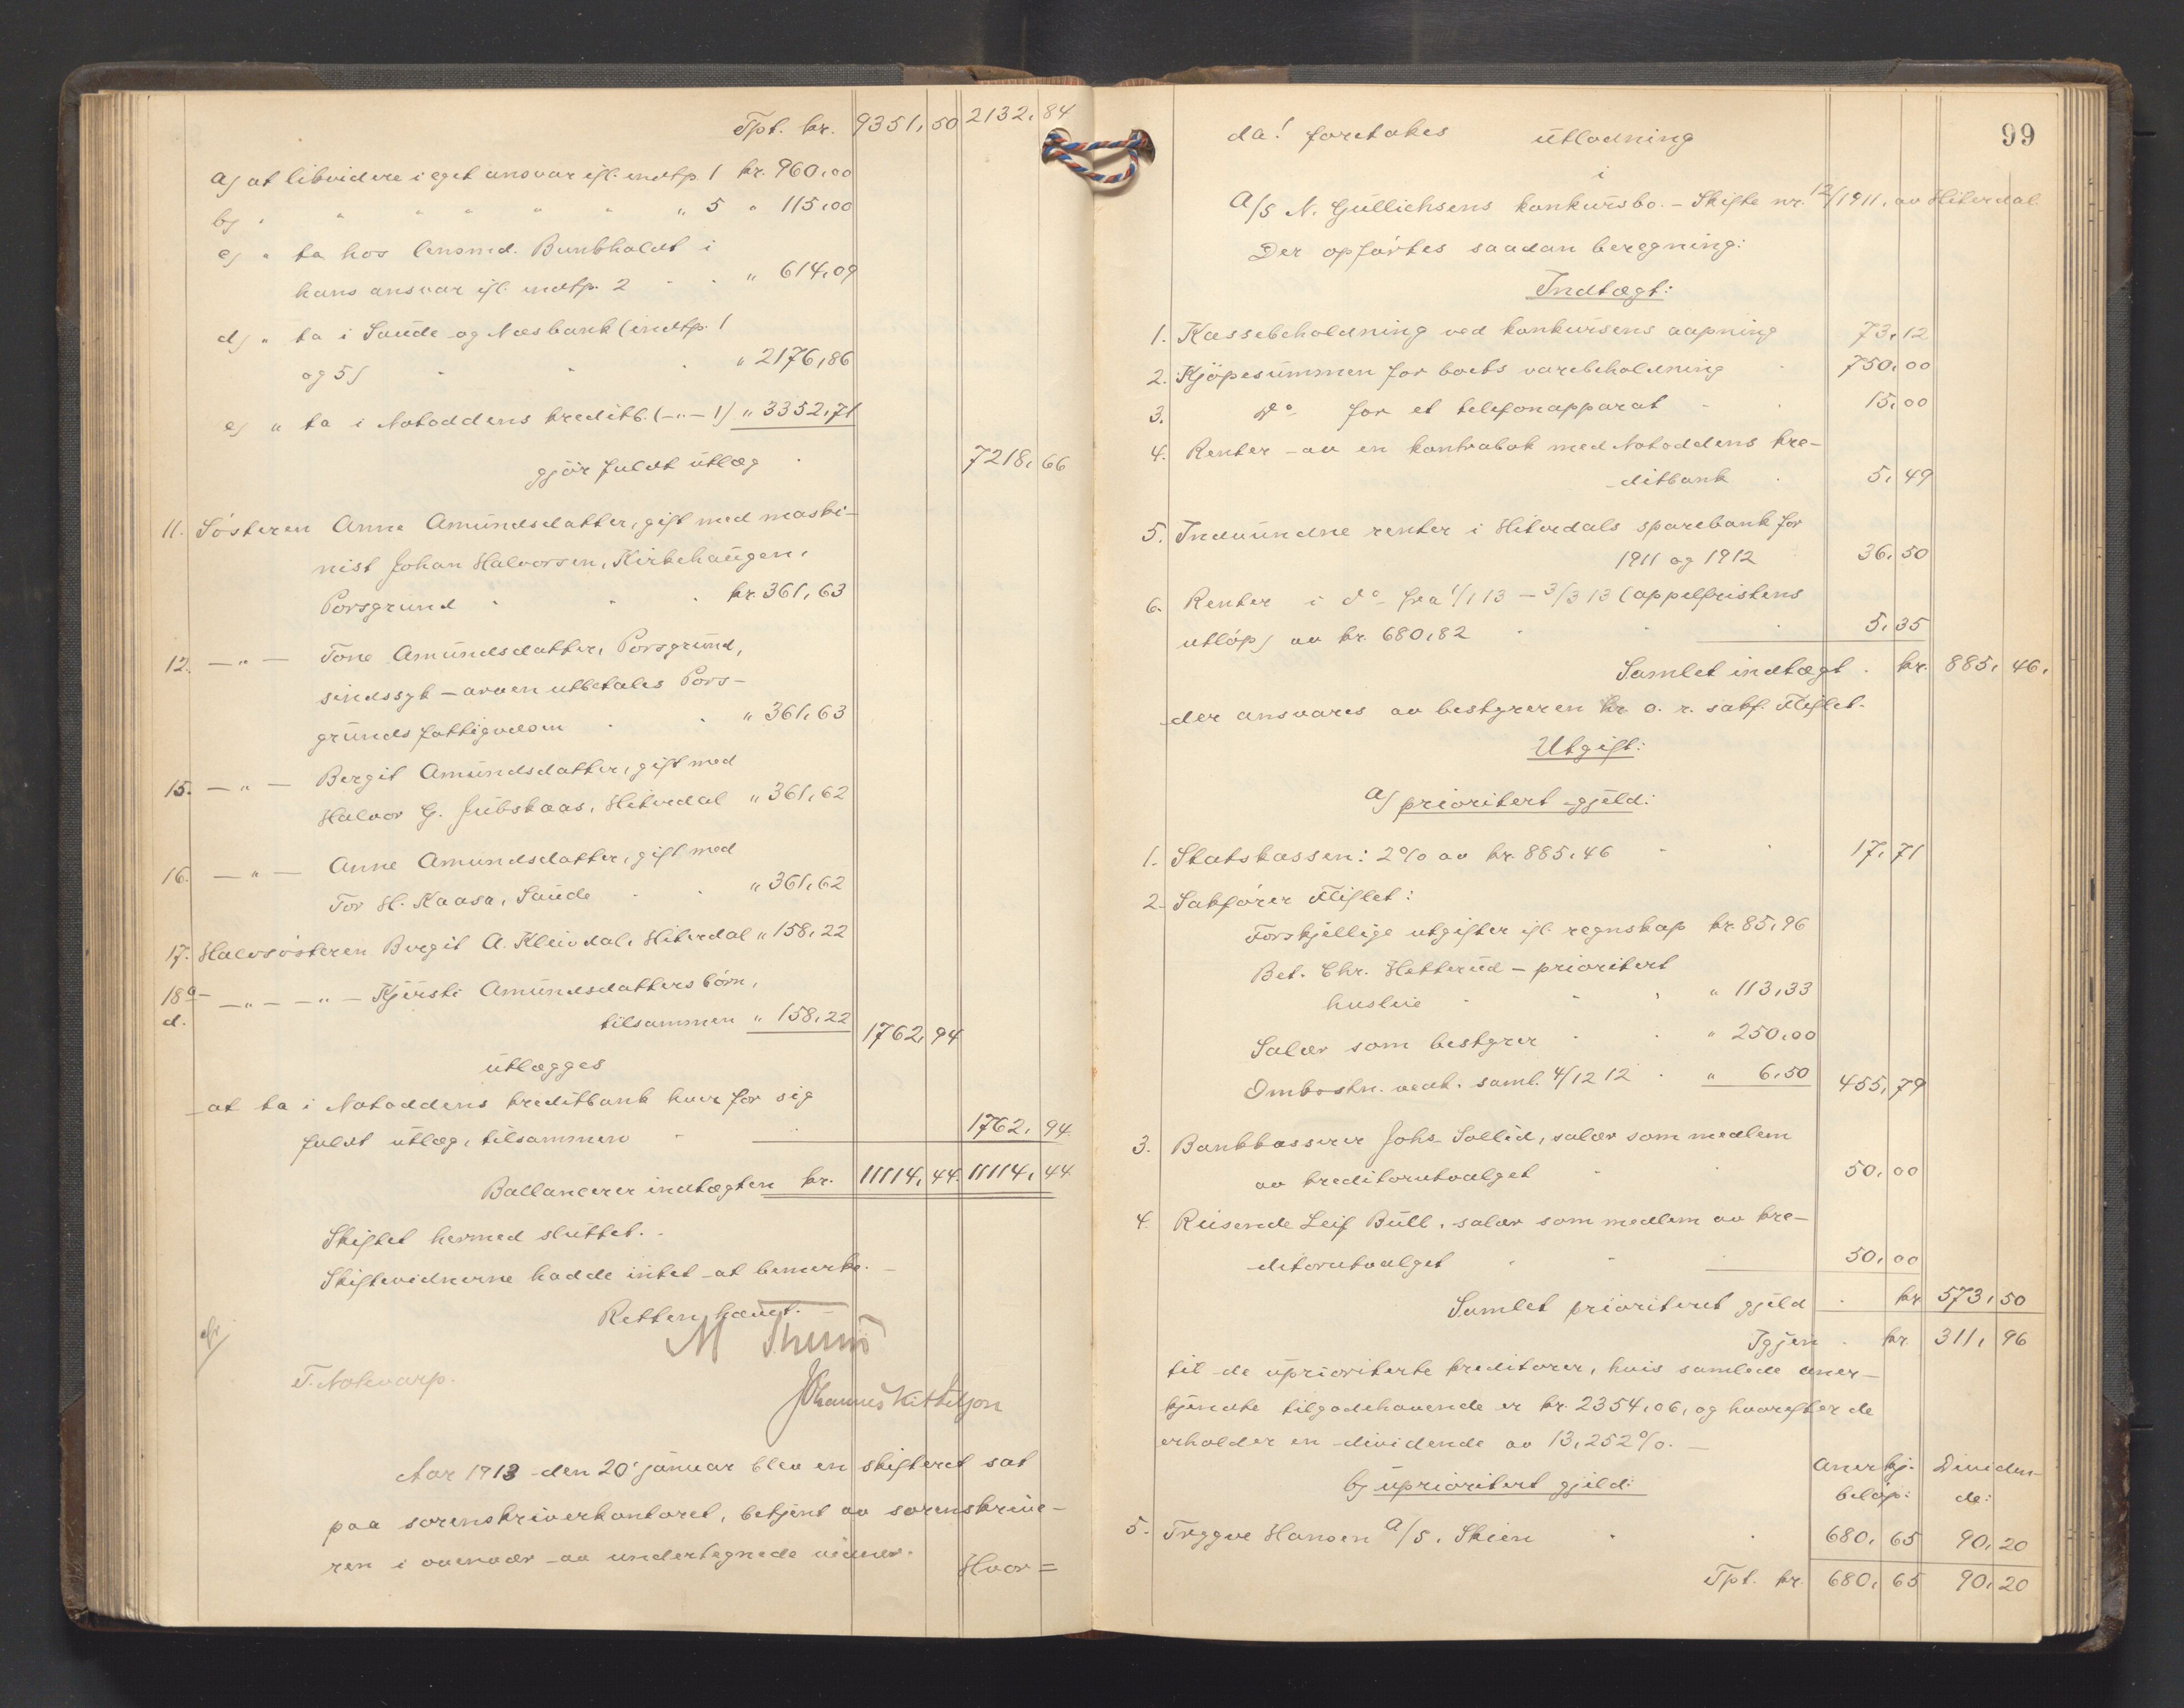 Tpt. kr. 9351,50 2132,84
a) at likvidere i eget ansvar ifl. indtp. 1 kr. 960,00
b) " " " " " " " 5 " 115,00
c) " ta hos lensmd. Bunkholdt i
hans ansvar ifl. indtp. 2 " 614,09
d) " ta i Saude og Nesbank (indtp. 1
og 5) " 2176,86
e) " ta i Notoddens kreditb. (—"— 1) " 3352,71
gjør fuldt utlæg 7218,66
11. Søsteren Anne Amundsdatter, gift med maski-
nist Johan Halvorsen, Kirkehaugen,
Porsgrund kr. 361,63
12. —"— Tone Amundsdatter, Porsgrund,
sindssyk – arven utbetales Pors-
grunds fattigvæsen " 361,63
15. —"— Bergit Amundsdatter, gift med
Halvor G. Jubskaas, Hiterdal " 361,62
16. —"— Anne Amundsdatter, gift med
Tor H. Kaasa, Saude " 361,62
17. Halvsøsteren Bergit A. Kleivdal, Hiterdal " 158,22
18 a- —"— —"— Kjersti Amundsdatters börn,
d. tilsammen " 158,22 1762,94
utlægges
at ta i Notoddens kreditbank hver for sig
fuldt utlæg, tilsammen 1762,94
Ballancerer indtægten kr. 11114,44. 11114,44
Skiftet hermed sluttet.
Skiftevidnerne hadde intet at bemerke.
Retten hævet.
M
Johannes Kittilsson
Aar 1913 den 20' januar blev en skifteret sat
paa sorenskriverkontoret, betjent av sorenskrive-
ren i overvær av undertegnede vidner.
Hvor=
99
da! foretokes utlodning
i
A/S N. Gullichsens konkursbo. – Skifte nr. 12/1911, av Hiterdal.
Der opførtes saadan beregning:
Indtægt:
1. Kassebeholdning ved konkursens aapning 73,12
2. Kjøpesummen for boets varebeholdning 750,00
3. do for et telefonapparat 15,00
4. Renter av en kontrabok med Notoddens kre-
ditbank 5,49
5. Indvundne renter i Hiterdals sparebank for
1911 og 1912 36,50
6. Renter i do fra 1/1 13 – 3/3 13 (appelfristens
utløp) av kr. 680,82 5,35
Samlet indtægt kr. 885,46.
der ansvares av bestyreren hr. o. r. sakf. Fliflet.
Utgift:
a) prioritert gjeld:
1. Statskassen: 2% av kr. 885,46 17,71
2. Sakfører Fliflet:
Forskjellige utgifter ifl. regnskap kr. 85,96
Bet. Chr. Hetterud – prioritert
husleie " 113,33
Salær som bestyrer " 250,00
Omkostn. vedk. saml. 4/12 12 " 6,50 455,79
3. Bankkasserer Johs. Sollid, salær som medlem
av kreditorutvalget 50,00
4. Reisende Leif Bull, salær som medlem av kre-
ditorutvalget 50,00
Samlet prioritert gjeld kr. 573,50
Igjen kr. 311,96
til de uprioriterte kreditorer, hvis samlede aner-
kjendte tilgodehavende er kr. 2354,06, og hvorefter de
erholder en dividende av 13,252%. —
b) uprioritert gjeld: Anerkj. beløp: Dividen-de:
5. Tryggve Hansen A/S, Skien 680,65 90,20
Tpt. kr. 680,65 90,20